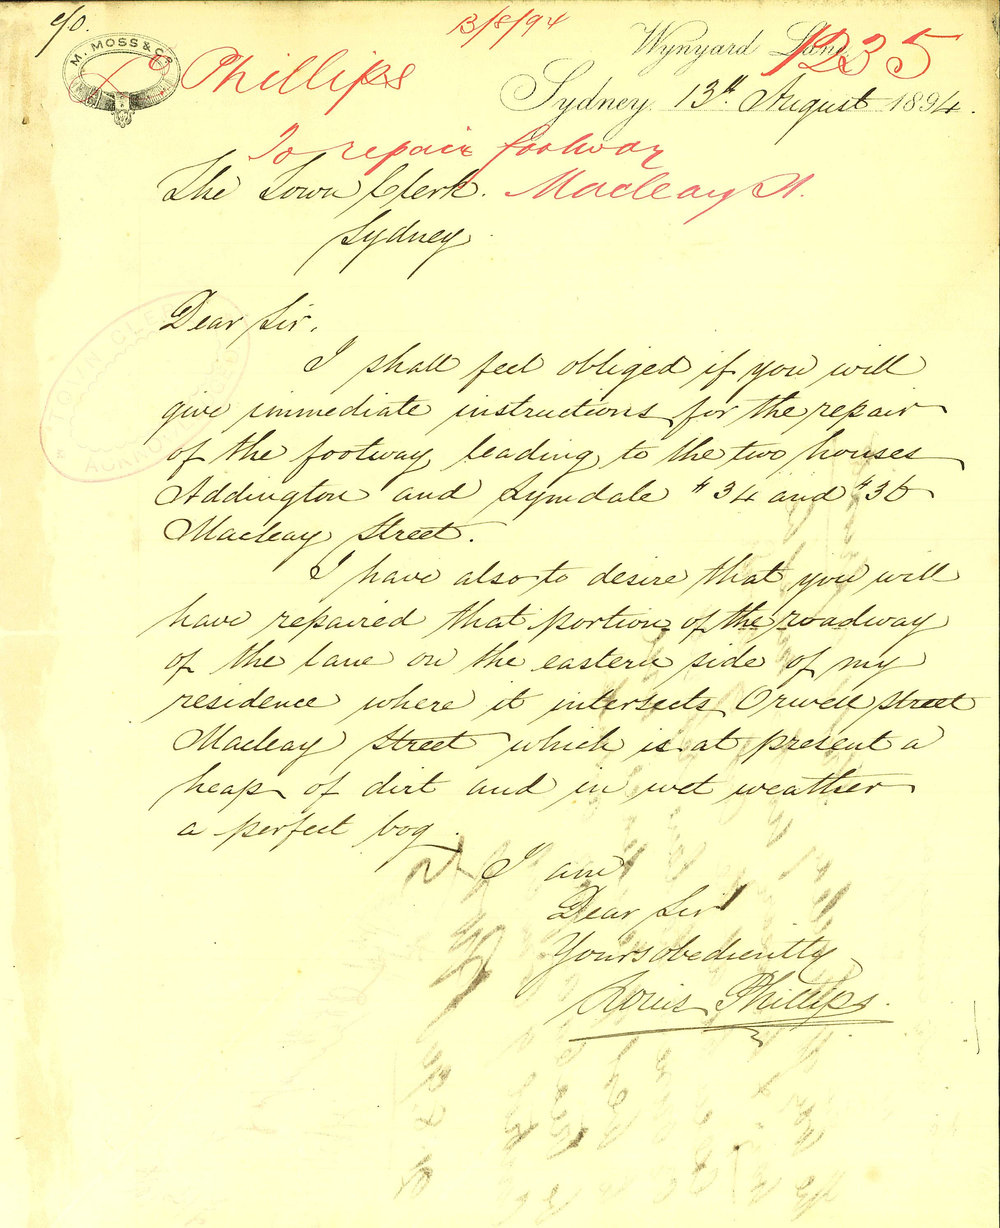 c/o.
M. MOSS & Co
13/8/94
Wynyard Lane
1235
L Phillips
Sydney, 13th August 1894.
To repair footway
Macleay St.
The Town Clerk.
Sydney
TOWN CLERK
ACKNOWLEDGED
Dear Sir,
I shall feel obliged if you will
give immediate instructions for the repair
of the footway leading to the two houses
Addington and Lymdale # 34 and # 36
Macleay Street.
I have also to desire that you will
have repaired that portion of the roadway
of the lane on the eastern side of my
residence where it intersects Orwell Street
Macleay Street which is at present a
heap of dirt and in wet weather
a perfect bog.
I am
Dear Sir
Yours obediently
Louis Phillips.